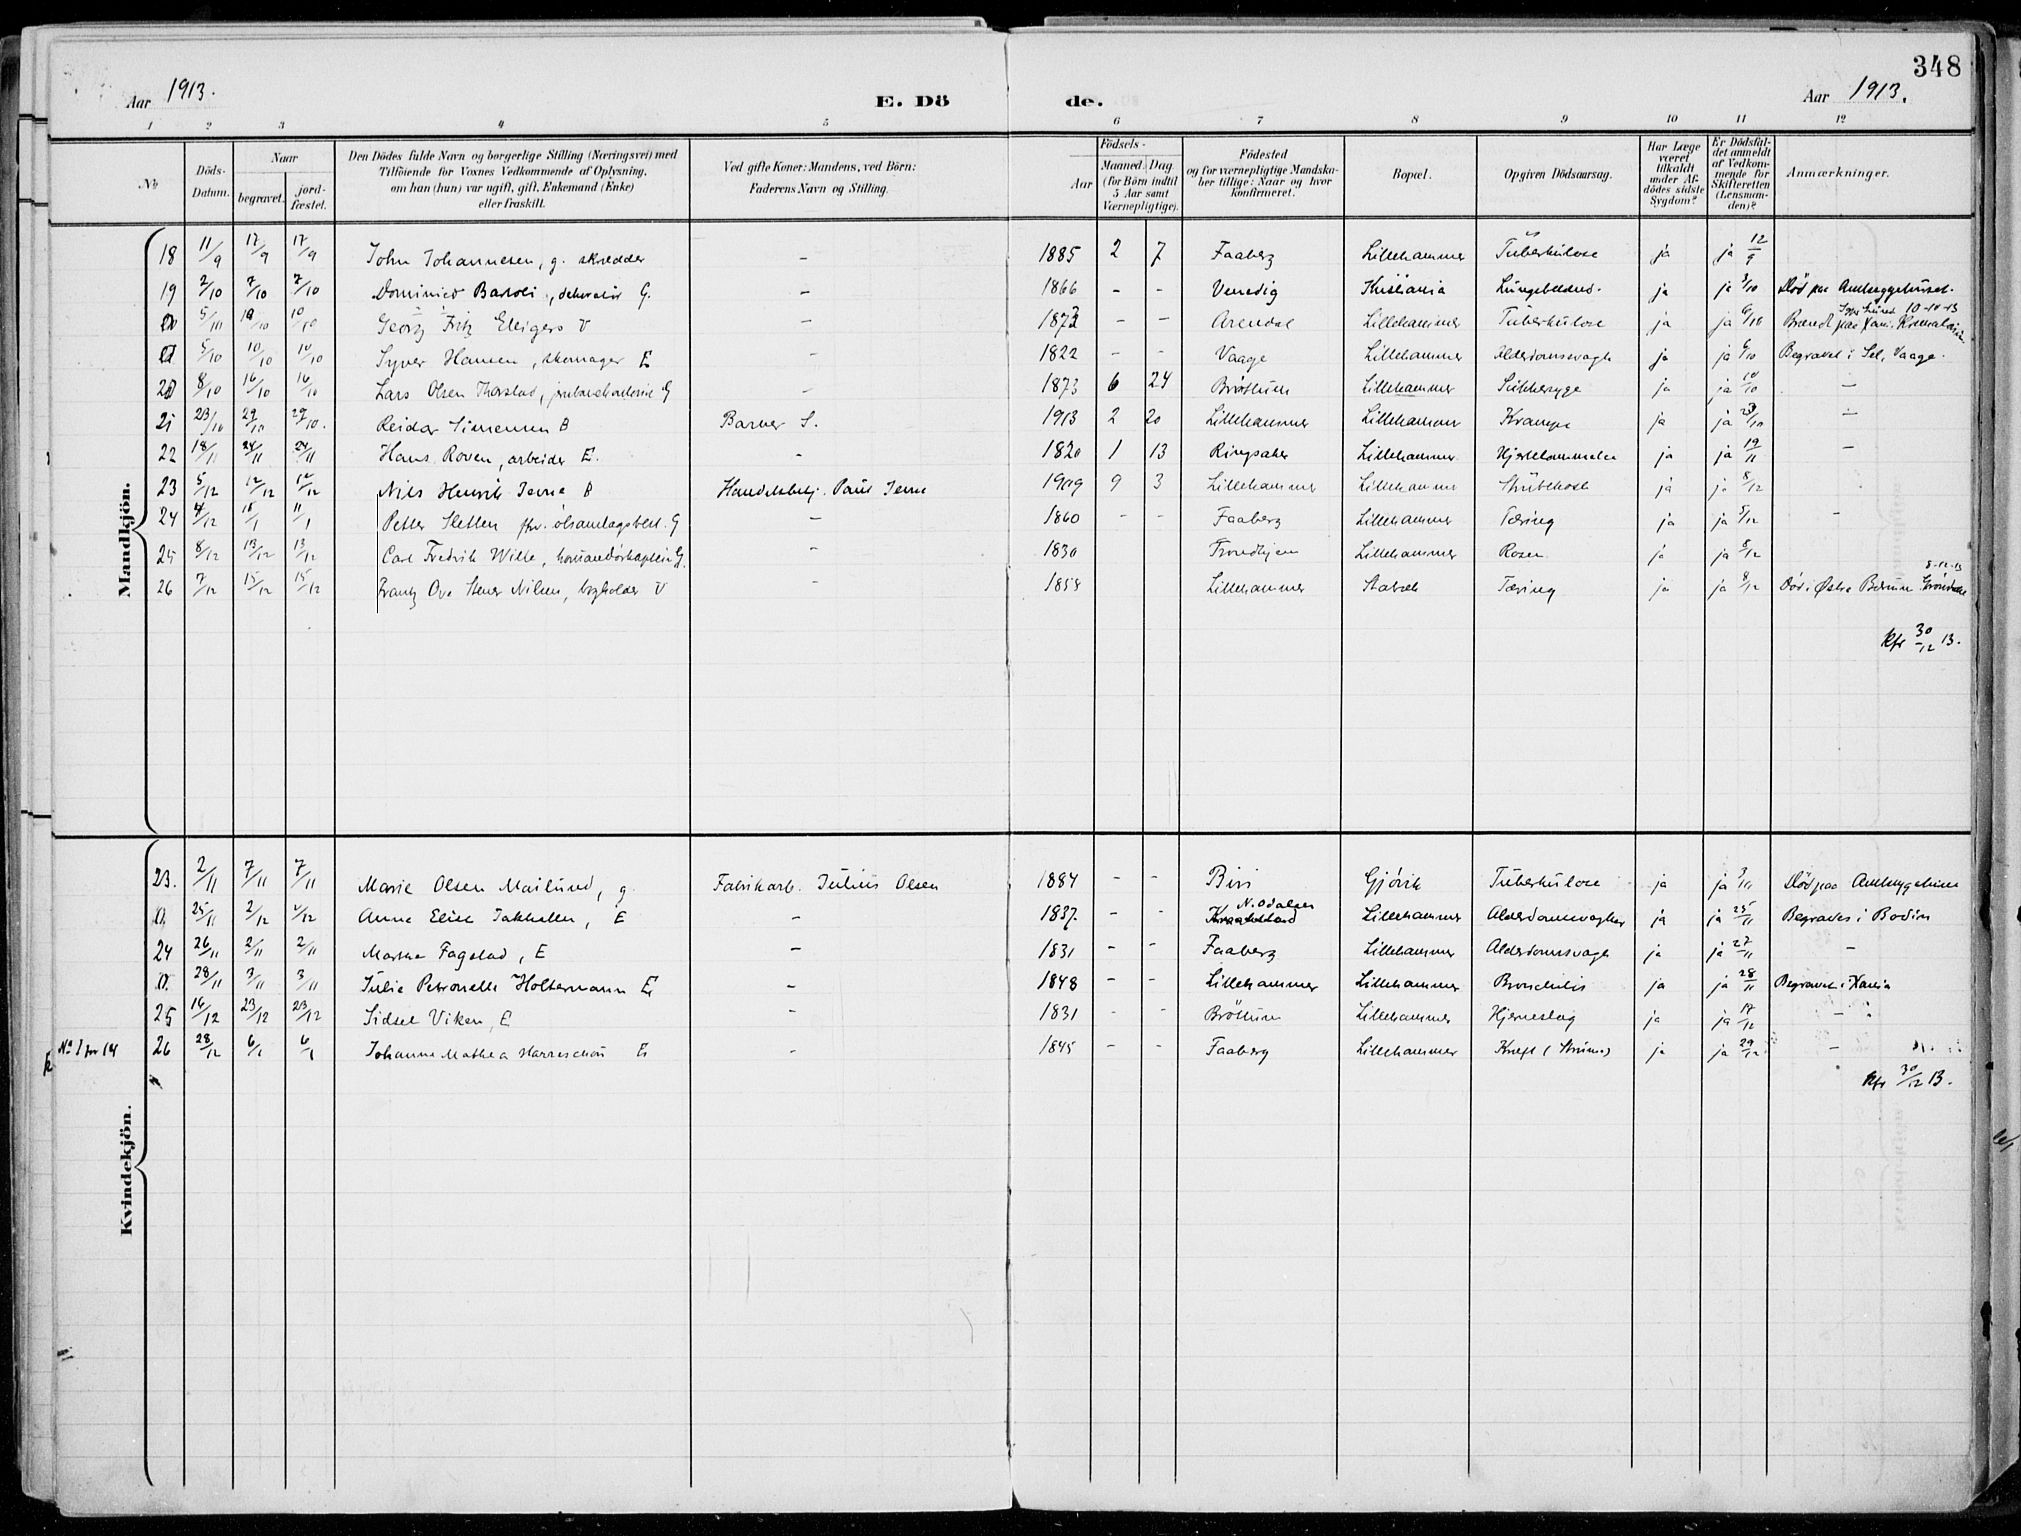 348
Aar 1913.
E. Dö de.
Aar 1913.
1 2 3 4 5 6 7 8 9 10 11 12
No
Döds-Datum.
Naar
begravet.
jord-fæstet.
Den Dödes fulde Navn og borgerlige Stilling (Næringsvei) med Tilföiende for Voxnes Vedkommende af Oplysning, om han (hun) var ugift, gift, Enkemand (Enke) eller fraskilt.
Ved gifte Koner: Mandens, ved Börn: Faderens Navn og Stilling.
Födsels-
Aar
Maaned. Dag
(for Börn indtil 5 Aar samt Værnepligtige).
Födested og for værnepligtige Mandskaber tillige: Naar og hvor konfirmeret.
Bopæl.
Opgiven Dödsaarsag.
Har Læge været tilkaldt under Afdödes sidste Sygdom?
Er Dödsfaldet anmeldt af Vedkommende for Skifteretten (Lensmanden)?
Anmærkninger.
Mandkjön.
18 11/9 17/9 17/9 John Johannesen, g. skrædder — 1885 2 7 Faaberg Lillehammer Tuberkulose ja ja 12/9
19 2/10 7/10 7/10 Dominico Bartoli, dekoratör G. — 1866 - - Venedig Kristiania ja ja 3/10 Död paa Amtssygehuset.
5/10 10/10 10/10 Georg Fritz V — 1873 - - Arendal Lillehammer Tuberkulose ja ja 6/10 Brændt paa 10-10-13
5/10 10/10 10/10 Syver Hansen, skomager E — 1822 - - Vaage Lillehammer Alderdomssvagh ja ja 6/10 Begravet i Sel, Vaage.
20 8/10 16/10 16/10 Lars Olsen G — 1873 6 24 Bröttum Lillehammer Sukkersyge ja ja 10/10 —
21 23/10 29/10 29/10. Reidar Simensen B Barber S. 1913 2 20 Lillehammer Lillehammer Krampe ja ja 23/10 —
22 18/11 24/11 24/11 Hans Roven, arbeider E. - 1820 1 13 Ringsaker Lillehammer ja ja 19/11 —
23 5/12 12/12 12/12 Nils Henrik Jevne B Handelsbetj. Paul Jevne 1909 9 3 Lillehammer Lillehammer Strubehoste ja ja 8/12
24 4/12 1 11/1 Petter Sletten fhv. ölsamlagsbest. G — 1860 Faaberg Lillehammer Tæring ja ja 5/12 -
25 8/12 13/12 13/12 Carl Fredrik Wille, komandörkaptein G. - 1830 Trondhjem Lillehammer Rosen ja ja 8/12
26 7/12 15/12 15/12 Frantz Ove Nilsen, bogholder V - Lillehammer Stabæk Tæring ja ja 8/12 Död i Östre Bærum 8-12-13
Kfr 30/12 13.
Kvindekjön.
23. 2/11 7/11 7/11 Marie Olsen Mailund, g. Fabrikarb. Julius Olsen 1884 - - Biri Gjövik Tuberkulose ja ja Död paa Amtssygehuset
25/11 2/12 2/12 Anna Elise E - 1837. N. Odalen Lillehammer Alderdomssvaghet ja ja 25/11 Begravet i Bodin
24 26/11 2/11 2/11 Marthe Fagstad, E - 1831 - - Faaberg Lillehammer Alderdomssvagh ja ja 27/11 —
28/11 3/11 3/11 Julie Petronelle Holtermann E - 1848 - - Lillehammer Lillehammer Bronchitis ja ja 28/11 Begravet i Xania
25 16/12 23/12 23/12 Sidsel Viken, E - 1831 - - Bröttum Lillehammer Hjerneslag ja ja 17/12 -
No 1 for 14 26 28/12 6/1 6/1 Johanne Mathea Harreschou E - 1845 - - Faaberg Lillehammer Kræft (Struma) ja ja 29/12 —
Kfr 30/12 13.